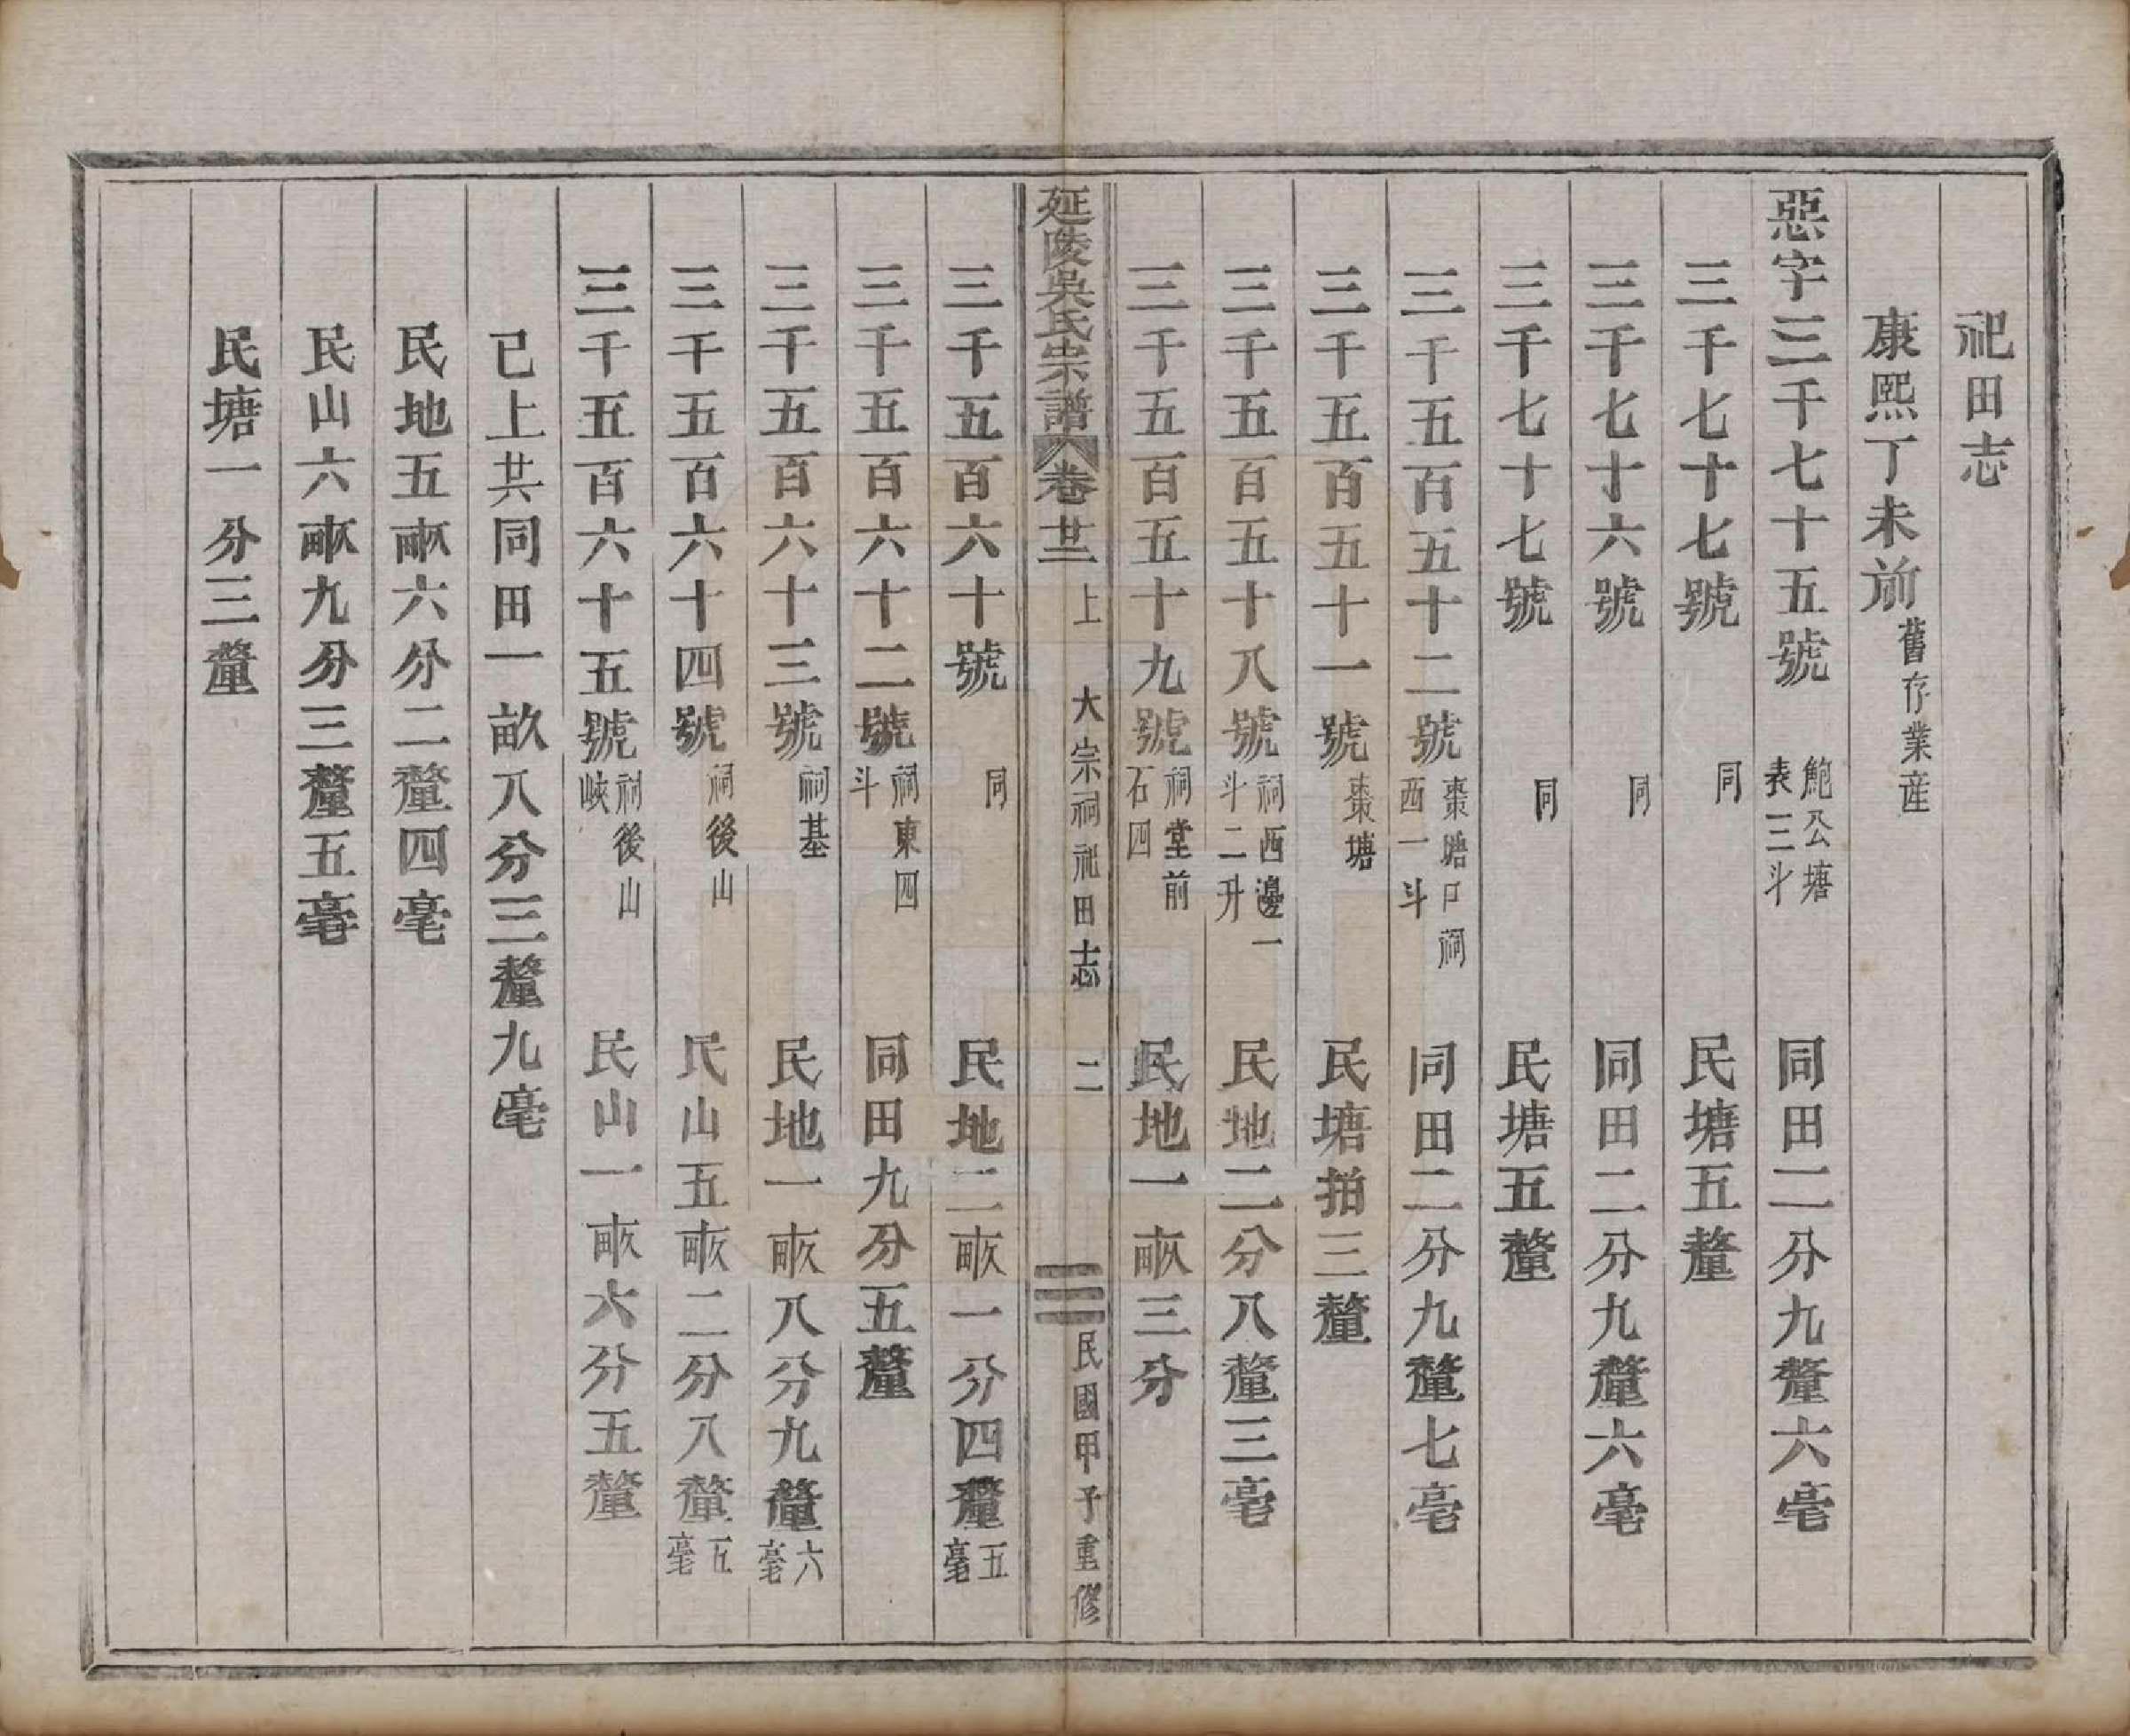 祀田志
康熙丁未前舊存業産
惡字三千七十五號 鮑公塘表三斗 同田二分九釐六毫
三千七十七號 同 民塘五釐
三千七十六號 同 同田二分九釐六毫
三千七十七號 同 民塘五釐
三千五百五十二號 棗塘口祠西一斗 同田二分九釐七毫
三千五百五十一號 棗塘 民塘拍三釐
三千五百五十八號 祠西邊一斗二升 民地二分八釐三毫
三千五百五十九號 祠堂前石四 民地一畞三分
延陵吳氏宗譜 卷廿二上 大宗祠祀田志 二 民國甲子重修
三千五百六十號 同 民地二畞一分四釐五毫
三千五百六十二號 祠東四斗 同田九分五釐
三千五百六十三號 祠基 民地一畞八分九釐六毫
三千五百六十四號 祠後山 民山五畞二分八釐五毫
三千五百六十五號 祠後山峽 民山一畞六分五釐
已上共同田一畝八分三釐九毫
民地五畞六分二釐四毫
民山六畞九分三釐五毫
民塘一分三釐